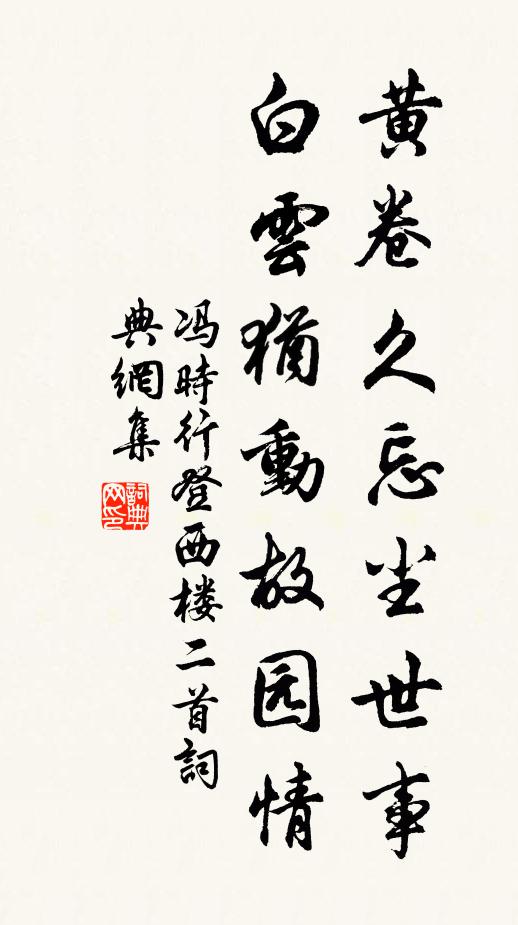 黃卷久忘尘世事
白雲猶動故园情
冯時行登西楼二首詞
典網集
詞典
网印